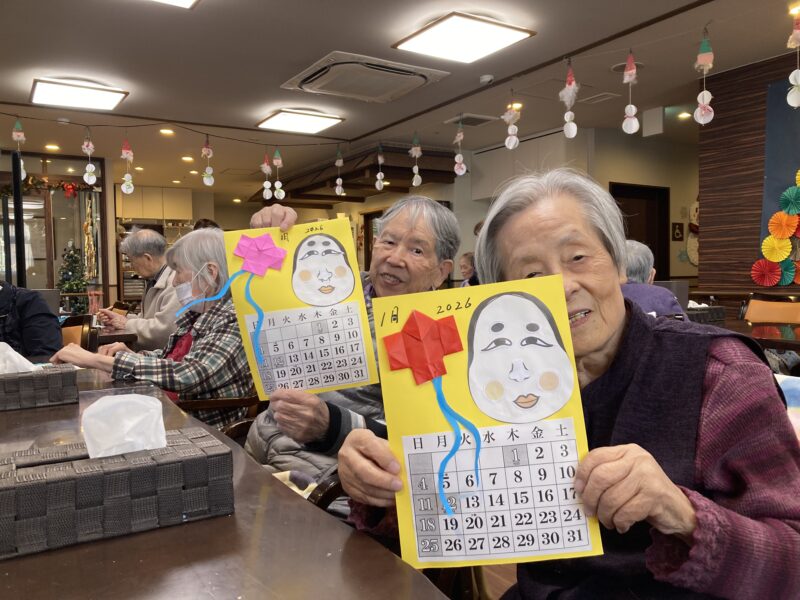 月 2026
日 月 火 水 木 金 土
1 2 3
5 6 7 8 9 10
12 13 14 15 16 17
19 20 21 22 23 24
25 26 27 28 29 30 31
1月 2026
日 月 火 水 木 金 土
1 2 3
4 5 6 7 8 9 10
11 12 13 14 15 16 17
18 19 20 21 22 23 24
25 26 27 28 29 30 31